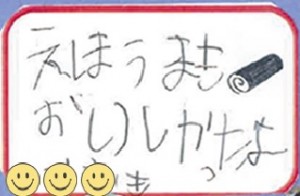 えほうまき
おいしかったよ